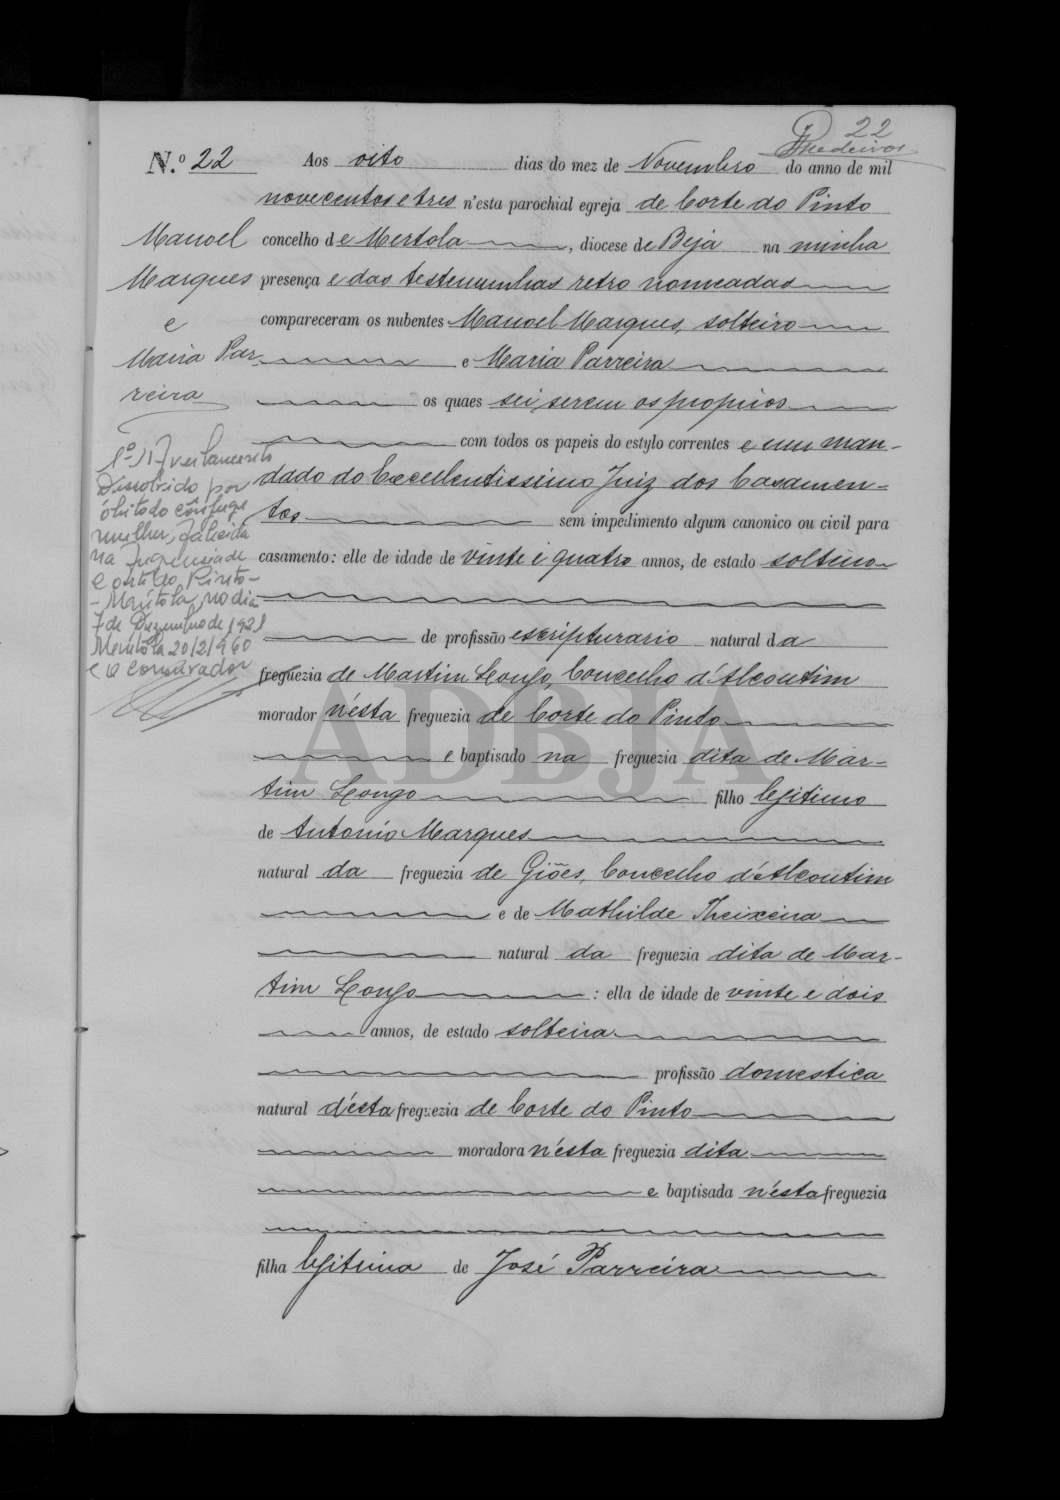 22
Medeiros
N.º 22
Aos oito dias do mez de Novembro do anno de mil
novecentos e tres n'esta parochial egreja de Corte do Pinto
concelho de Mertola, diocese de Beja na minha
presença e das testemunhas retro nomeadas
compareceram os nubentes Manoel Marques, solteiro
e Maria Parreira
os quaes sei serem os proprios
com todos os papeis do estylo correntes e um man-
dado do Excellentissimo Juiz dos Casamen-
tos sem impedimento algum canonico ou civil para
casamento: elle de idade de vinte e quatro annos, de estado solteiro
de profissão escripturario natural da
freguezia de Martim Longo, Concelho d'Alcoutim
morador n'ésta freguezia de Corte do Pinto
e baptisado na freguezia dita de Mar-
tim Longo filho legitimo
de Antonio Marques
natural da freguezia de Giões, Concelho d'Alcoutim
e de Mathilde Theixeira
natural da freguezia dita de Mar-
tim Longo: ella de idade de vinte e dois
annos, de estado solteira
profissão domestica
natural d'ésta freguezia de Corte do Pinto
moradora n'ésta freguezia dita
e baptisada n'ésta freguezia
filha legitima de José Parreira
Manoel
Marques
e
Maria Par-
reira
1º Averbamento
Dissolvido por
óbito do cônjuge
mulher, falecida
na freguesia de
Corte do Pinto-
-Mértola, no dia
7 de Dezembro de 1921
Mértola 20/2/960
O Conservador
ADBJA